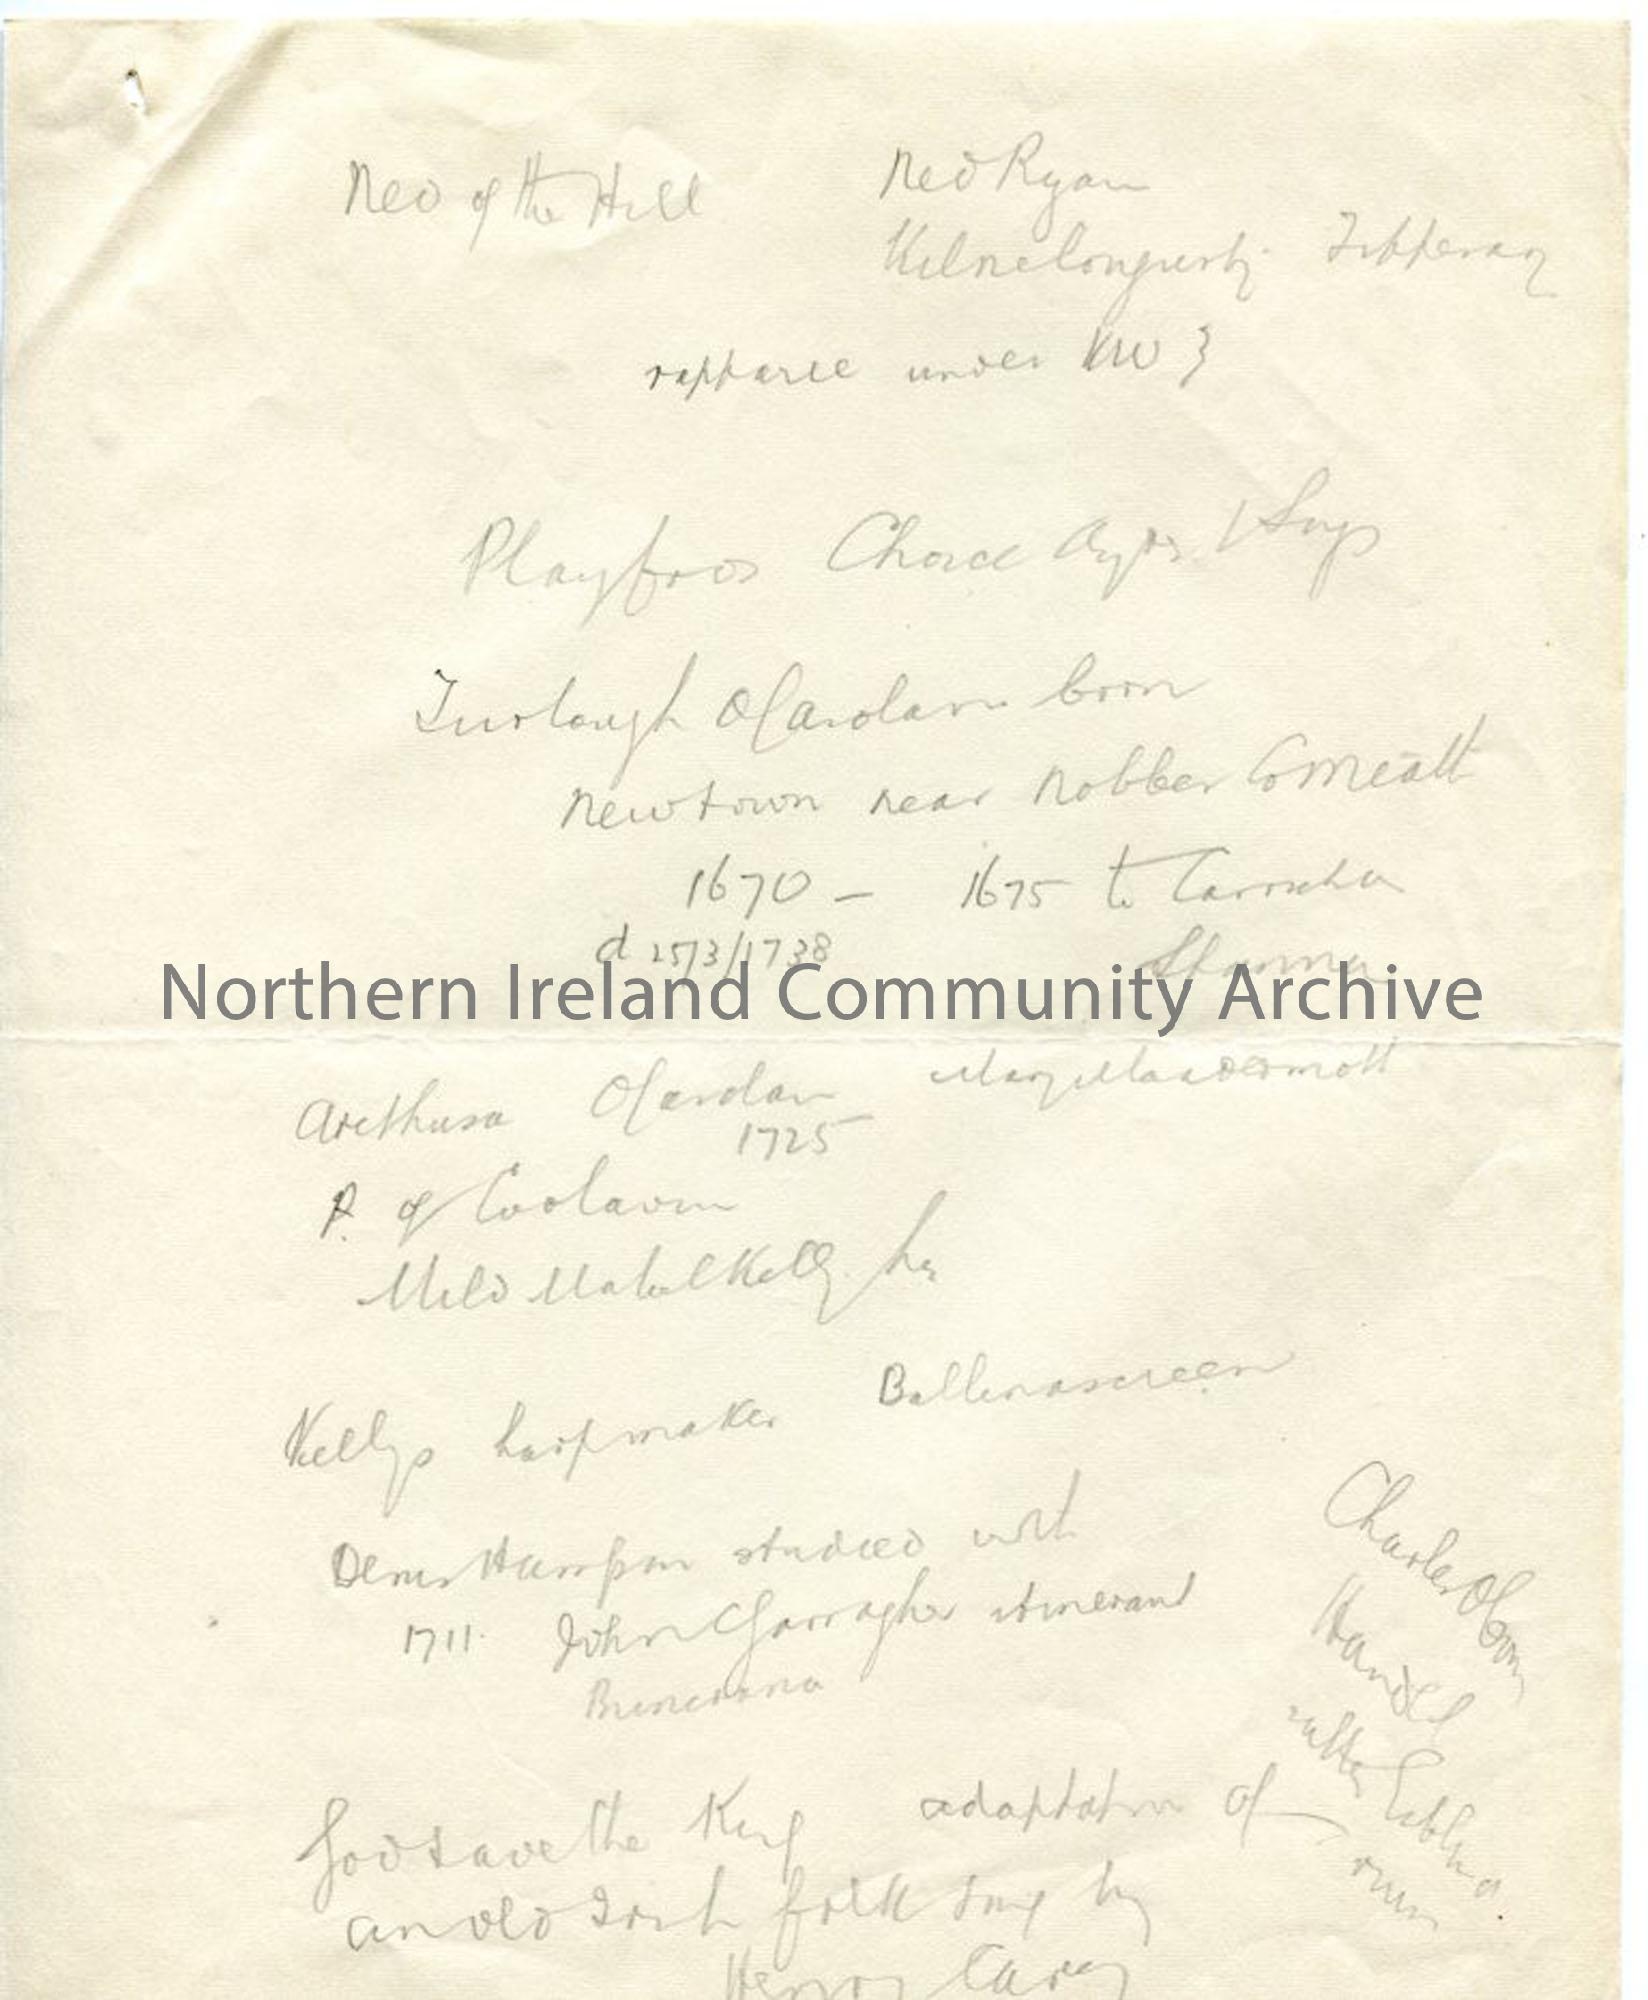 Ned of the Hill
Ned Ryan
Kilnelongurty Tipperary
rapparee under KW 3
Playfords Choice Ayres & Songs
Turlough O'Carolan born
Newtown near Nobber Co Meath
1670 — 1675 to Carrick on
d 25/3/1738
Shannon
Northern Ireland Community Archive
Arethusa O'Carolan Mary MacDermott
1725
P. of Coolavin
Mild Mabel Kelly by
Kellys harpmaker Ballinascreen
Denis Hampson studied with
1711. John Garragher itinerant
Buncrana
Charles O'Conor
Handel
rather Eibhlin a
ruin
God save the King adaptation of
an old Irish folk song by
Henry Carey